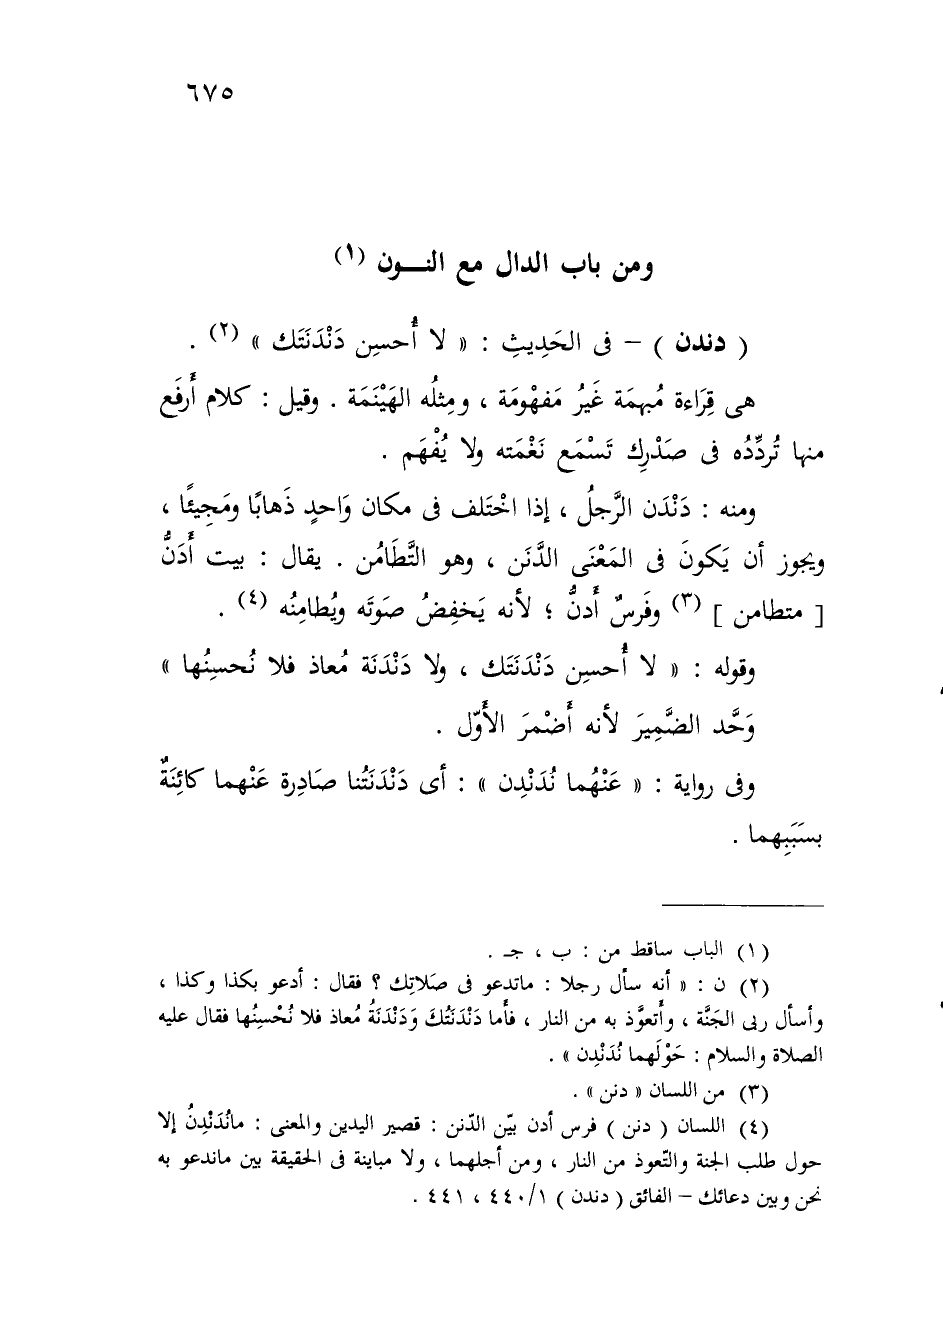 ٦٧٥
ومن باب الدال مع النـــون (١)
( دندن ) – فى الحَدِيثِ : « لا أُحسِن دَنْدَنَتَك » (٢) .
هى قِرَاءة مُبهمَة غَيرُ مَفهُومَة ، ومِثلُه الهَيْنَمَة . وقيل : كلام أَرفَع
منها تُردِّدُه فى صَدْرِك تَسْمَع نَغْمَته ولا يُفْهَم .
ومنه : دَنْدَن الرَّجلُ ، إذا اخْتَلف فى مكان وَاحدٍ ذَهابًا ومَجِيئًا ،
ويجوز أن يَكونَ فى المَعْنَى الدَّنَن ، وهو التَّطَامُن . يقال : بيت أَدَنُّ
[ متطامن ] (٣) وفَرسٌ أَدنُّ ؛ لأنه يَخفِضُ صَوتَه ويُطامِنُه (٤) .
وقوله : « لا أُحسِن دَنْدَنَتَك ، ولا دَنْدَنَة مُعاذ فلا نُحسِنُها »
وَحَّد الضَّمِيرَ لأنه أَضْمرَ الأَوّل .
وفى رواية : « عَنْهُما نُدَنْدِن » : أى دَنْدَنَتُنا صَادِرة عَنْهما كائِنَةٌ
بسَبَبِهما .
(١) الباب ساقط من : ب ، جـ .
(٢) ن : « أنه سأل رجلا : ماتدعو فى صَلاتِك ؟ فقال : أدعو بكذا وكذا ،
وأسأل ربى الجَنَّة ، وأَتعوَّذ به من النار ، فأَما دَنْدَنَتُكَ وَدَنْدَنَةُ مُعاذ فلا نُحْسِنُها فقال عليه
الصلاة والسلام : حَوْلَهما نُدَنْدِن » .
(٣) من اللسان « دنن » .
(٤) اللسان ( دنن ) فرس أدن بيّن الدّنن : قصير اليدين والمعنى : مانُدَنْدِنُ إلا
حول طلب الجنة والتّعوذ من النار ، ومن أجلهما ، ولا مباينة فى الحقيقة بين ماندعو به
نحن وبين دعائك – الفائق ( دندن ) ١/ ٤٤٠ ، ٤٤١ .